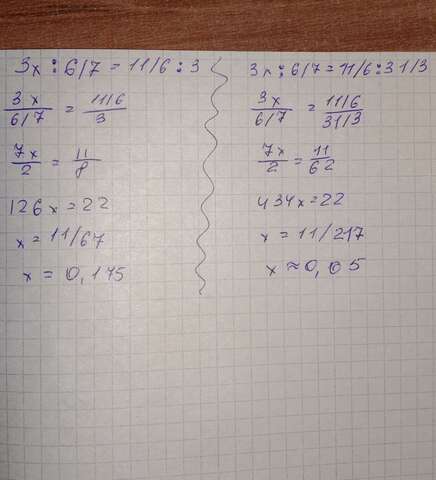 3x : 6/7 = 11/6 : 3
3x / 6/7 = 11/6 / 3
7x/2 = 11/8
126x = 22
x = 11/67
x = 0,175
3x : 6/7 = 11/6 : 31/3
3x / 6/7 = 11/6 / 31/3
7x/2 = 11/62
434x = 22
x = 11/217
x ≈ 0,05